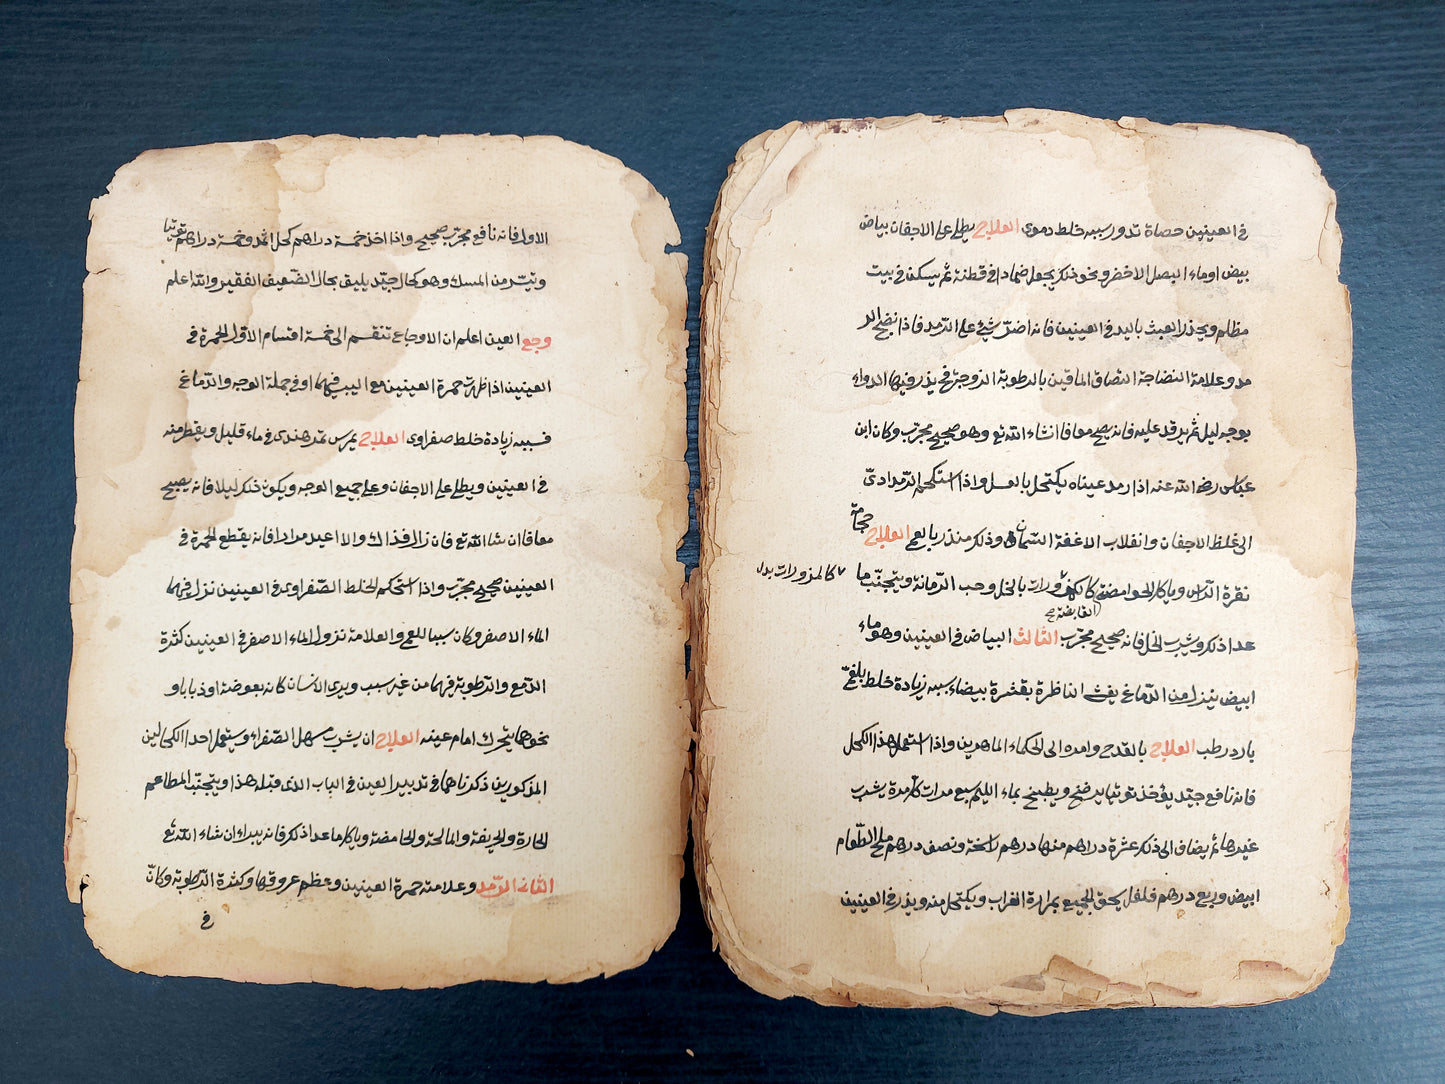 الاول فانه نافع مجرب صحيح واذا اخذ خمسة دراهم كحل اثمد وخمسة دراهم توتيا
ويسير من المسك وهو كحال جيد يليق بحال الضعيف الفقير والله اعلم
وجع العين اعلم ان الاوجاع تنقسم الى خمسة اقسام الاول الحمرة في
العينين اذا ظهرت حمرة العينين مع اليبس فيهما او في جملة الوجه والدماغ
فسببه زيادة خلط صفراوى العلاج يمرس تمر هندى في ماء قليل ويقطر منه
في العينين ويطلى على الاجفان وعلى جميع الوجه ويكون ذلك ليلا فانه يصبح
معافا ان شا الله تع فان زال فذاك والا اعيد مرارا فانه يقطع الحمرة في
العينين صحيح مجرب واذا استحكم الخلط الصفراوى في العينين نزل فيهما
الماء الاصفر وكان سببا للعمى والعلامة نزول الماء الاصفر في العينين كثرة
الدمع والرطوبة فيهما من غير سبب ويرى الانسان كانه بعوضة او ذبابا او
نحوها يتحرك امام عينه العلاج ان يشرب مسهل الصفراء ويستعمل احد الكحالين
المذكورين ذكرناهما في تدبير العين في الباب الذى قبله هذا ويتجنب المطاعم
الحارة والحريفة والمالحة والحامضة وياكل ما عدا ذلك فانه يبراء ان شاء الله تع
الثانى الرمد وعلامته حمرة العينين وعظم عروقها وكثرة الرطوبة وكان
في
في العينين حصاة تدور سببه خلط دموى العلاج يطلى على الاجفان بياض
بيض او ماء البصل الاخضر ونحو ذلك يجعل ضمادا في قطنة ثم يسكن في بيت
مظلم ويحذر العبث باليد في العينين فانه اضر شئ على الرمد فاذا نضج الر
مد وعلامة النضاجة التصاق الماقين بالرطوبة اللزوجة فح يذر فيها الدواء
بوجه ليل ثم يرقد عليه فانه يصبح معافا انشاء الله تع وهو صحيح مجرب وكان ابن
عباس رضى الله عنه اذا رمد عيناه يكتحل بالعسل واذا استحكم الرمد ادى
الى غلظ الاجفان وانقلاب الاغفة السمان وذلك منذر بالعمى العلاج حجامة
نقرة الراس وياكل الحوامض كالمزورات بالخل وحب الرمانة ويتجنب ما
كالمزورات بدل
القابضة صح
عدا ذلك ويشرب الخل فانه صحيح مجرب الثالث البياض في العينين وهو ماء
ابيض ينزل من الدماغ يغشى الناظرة بقشرة بيضاء سببه زيادة خلط بلغمى
بارد رطب العلاج بالقدح وامره الى الحكماء الماهرين واذا استعمل هذا الكحل
فانه نافع جيد يؤخذ توتيا يرضخ ويطبخ بماء الليم سبع مرات كل مرة يشرب
غيرها ثم يضاف الى ذلك عشرة دراهم منها درهم راسخة ونصف درهم ملح الطعام
ابيض وربع درهم فلفل يسحق الجميع بمرارة الغراب ويكتحل منه ويذر في العينين